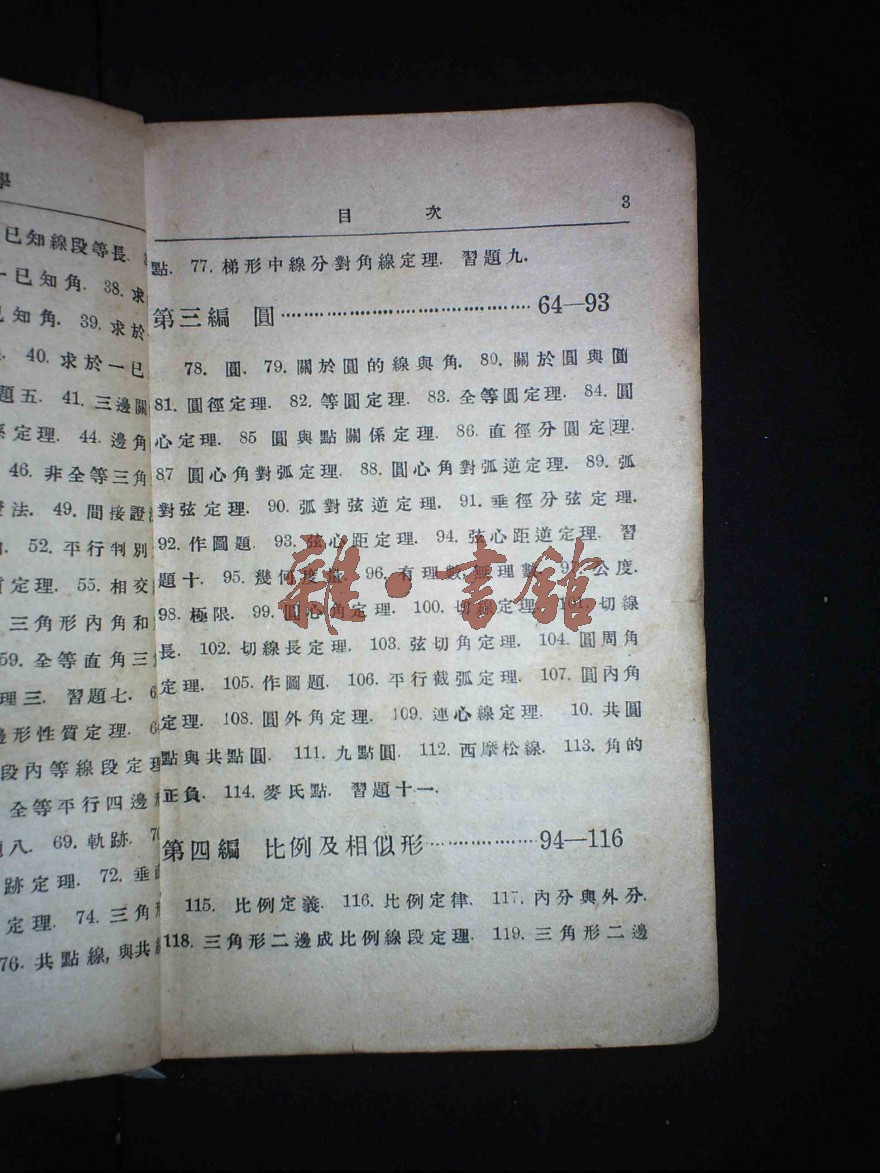 學
已知線段等長.
一已知角. 38. 求
已知角. 39. 求於
40. 求於一已
題五. 41. 三邊關
係定理. 44. 邊角
46. 非全等三角
證法. 49. 間接證
52. 平行判別
質定理. 55. 相交
三角形內角和
59. 全等直角三
理三. 習題七.
邊形性質定理.
段內等線段定理
全等平行四邊形
題八. 69. 軌跡. 70
跡定理. 72. 垂
定理. 74. 三角形
76. 共點線, 與共線
目 次 3
點. 77. 梯形中線分對角線定理. 習題九.
第三編 圓 64—93
78. 圓. 79. 關於圓的線與角. 80. 關於圓與圓
81. 圓徑定理. 82. 等圓定理. 83. 全等圓定理. 84. 圓
心定理. 85 圓與點關係定理. 86. 直徑分圓定理.
87 圓心角對弧定理. 88. 圓心角對弧逆定理. 89. 弧
對弦定理. 90. 弧對弦逆定理. 91. 垂徑分弦定理.
92. 作圖題. 93. 弦心距定理. 94. 弦心距逆定理. 習
題十. 95. 幾何度量. 96. 有理數, 無理數. 97. 公度.
98. 極限. 99. 圓心角定理. 100. 切線定理. 101. 切線
長. 102. 切線長定理. 103. 弦切角定理. 104. 圓周角
定理. 105. 作圖題. 106. 平行截弧定理. 107. 圓內角
定理. 108. 圓外角定理. 109. 連心線定理. 10. 共圓
點與共點圓. 111. 九點圓. 112. 西摩松線. 113. 角的
正負. 114. 麥氏點. 習題十一.
第四編 比例及相似形 94—116
115. 比例定義. 116. 比例定律. 117. 內分與外分.
118. 三角形二邊成比例線段定理. 119. 三角形二邊
雜·書館